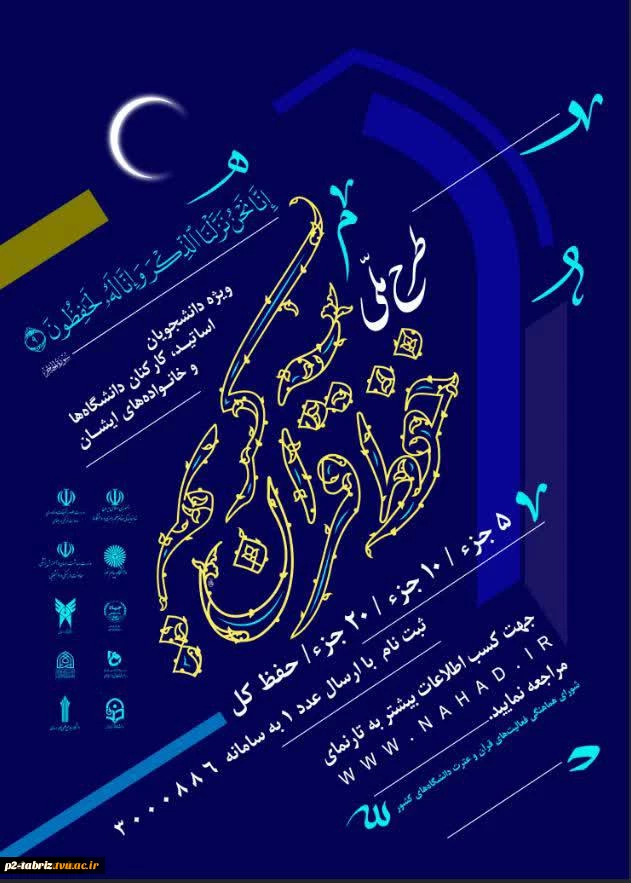 إِنَّا نَحْنُ نَزَّلْنَا الذِّكْرَ وَإِنَّا لَهُ لَحَافِظُونَ
ویژه دانشجویان
اساتید، کارکنان دانشگاه‌ها
و خانواده‌های ایشان
طرح ملّی
حافظان قرآن کریم
۵ جزء / ۱۰ جزء / ۲۰ جزء / حفظ کل
ثبت نام با ارسال عدد ۱ به سامانه ۳۰۰۰۸۸۶
جهت کسب اطلاعات بیشتر به تارنمای
WWW.NAHAD.IR
مراجعه نمایید.
شورای هماهنگی فعالیت‌های قرآن و عترت دانشگاه‌های کشور
p2-tabriz.tvu.ac.ir